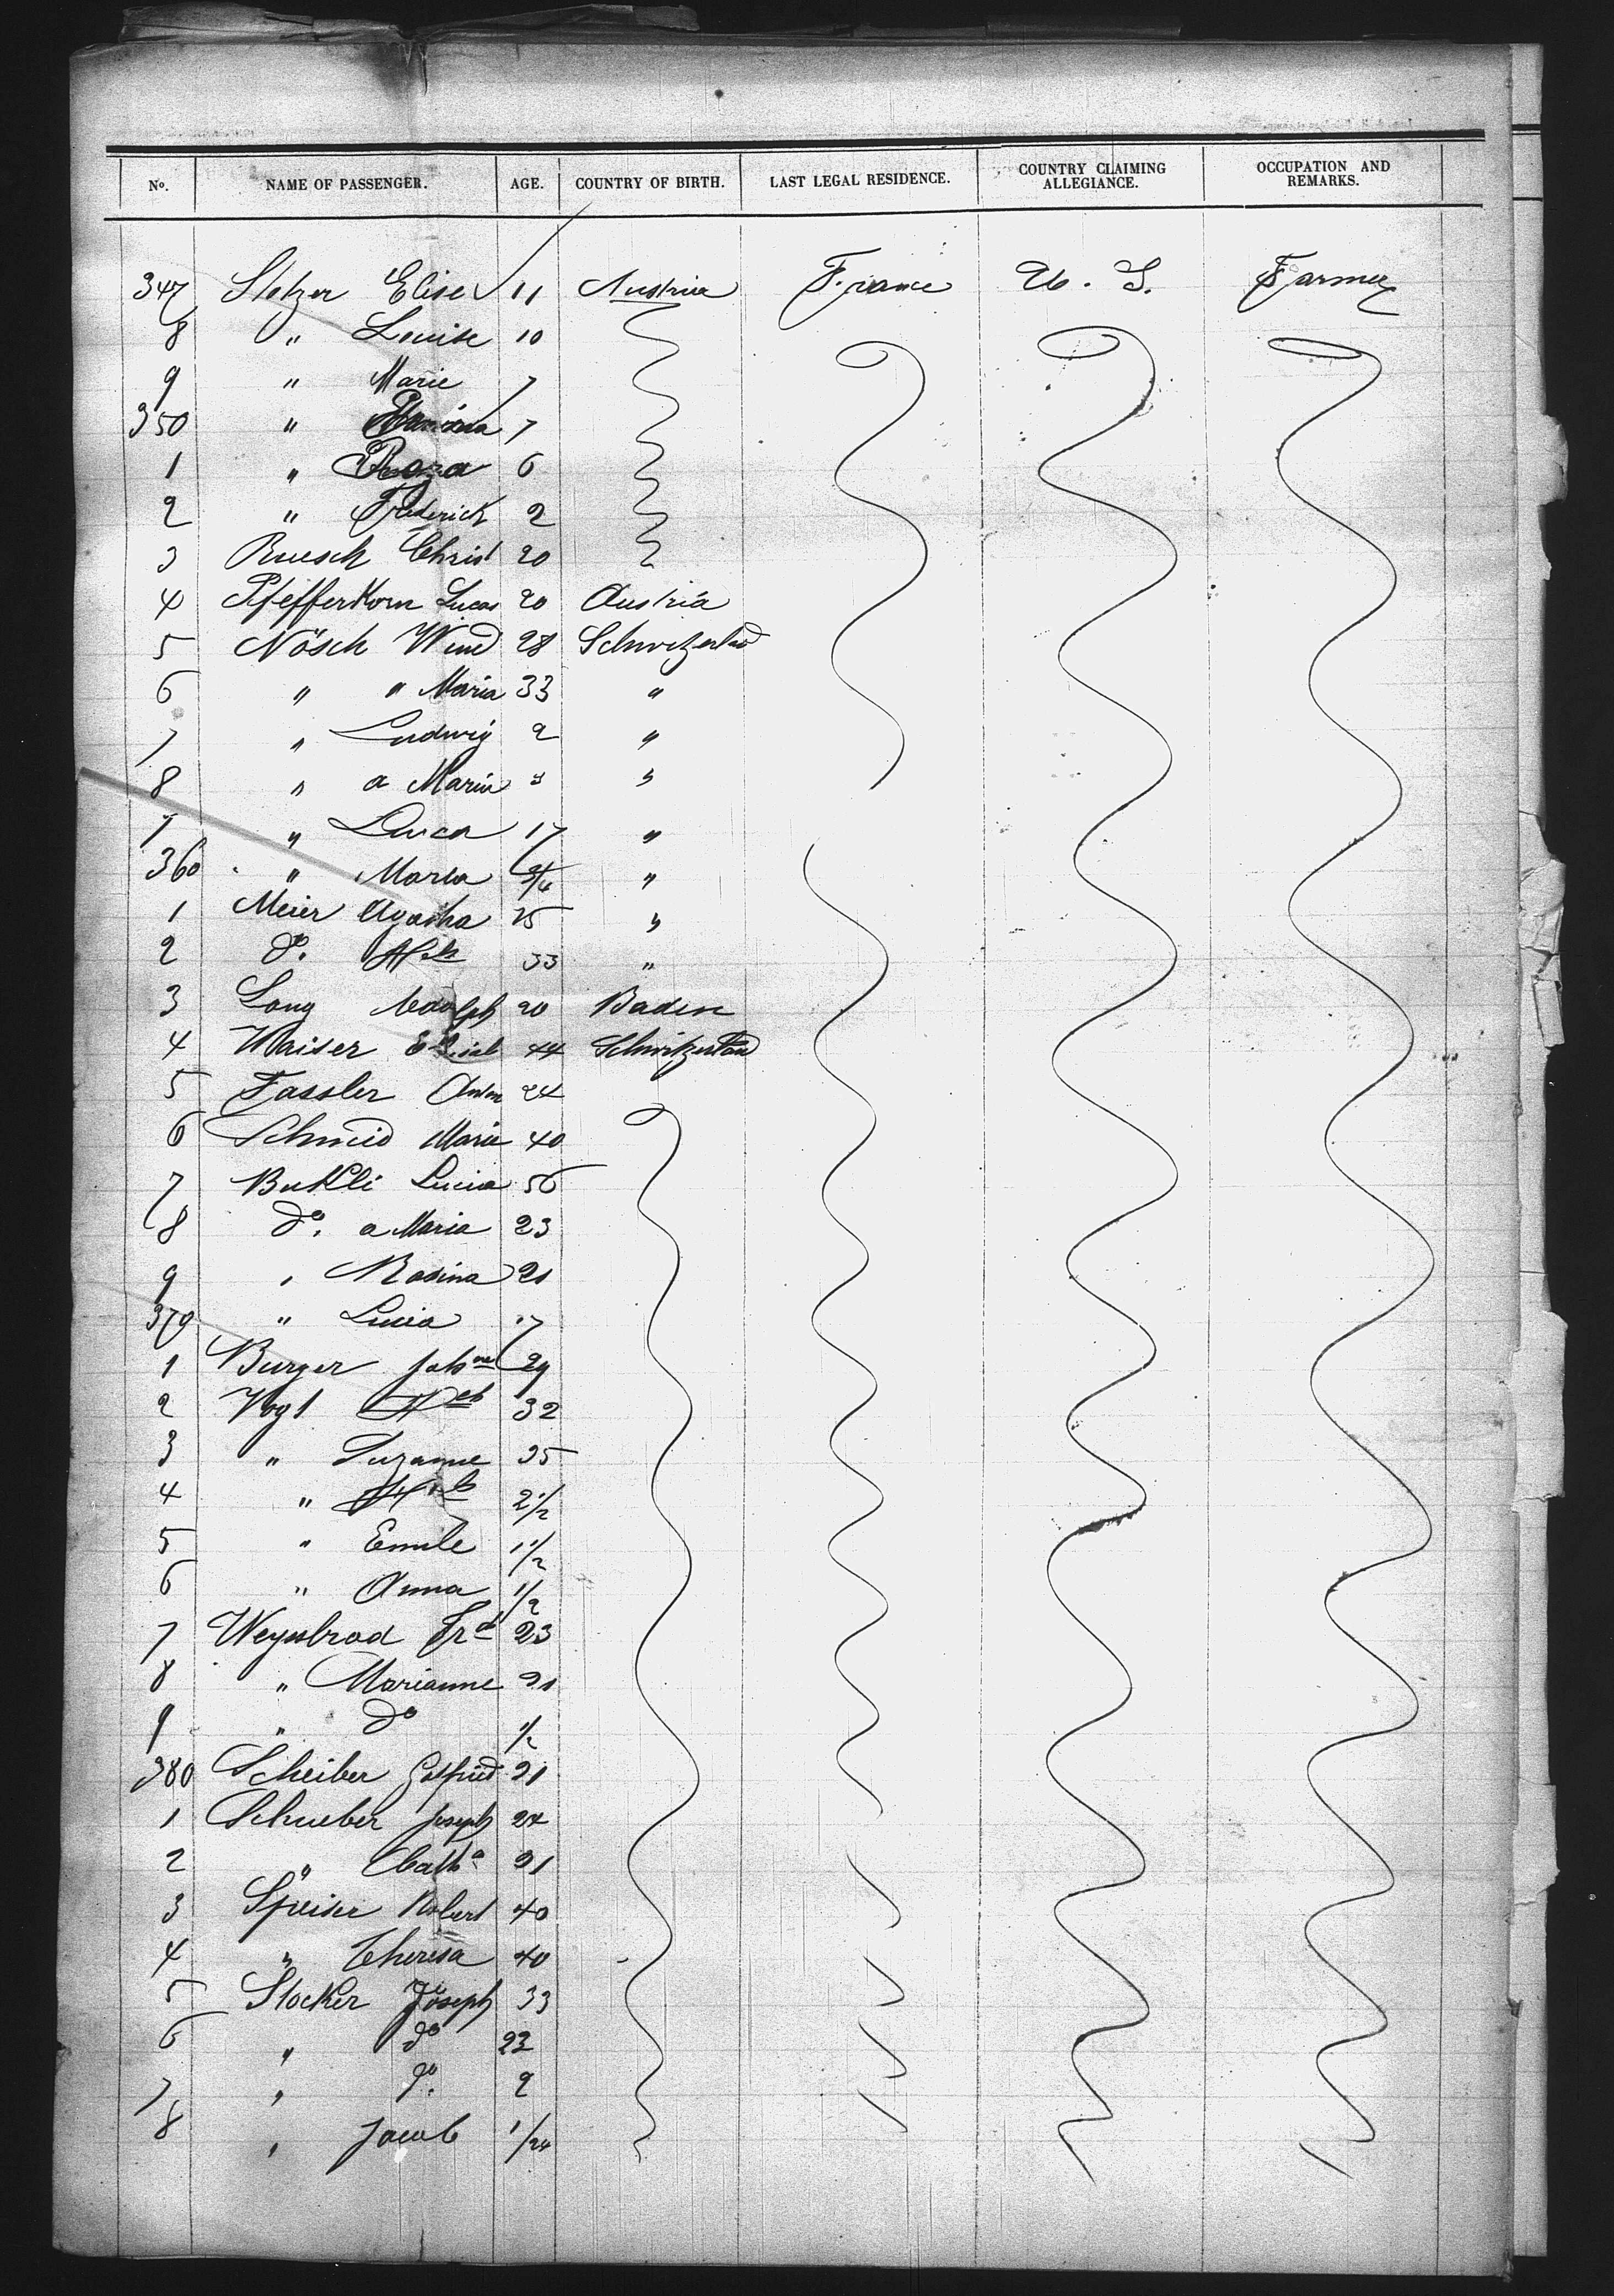 No. NAME OF PASSENGER. AGE. COUNTRY OF BIRTH. LAST LEGAL RESIDENCE. COUNTRY CLAIMING ALLEGIANCE. OCCUPATION AND REMARKS.
347 Stelzer Elise 11 Austria France U. S. Farmer
8 " Louise 10
9 " Marie 7
350 " 7
1 " Roza 6
2 " Frederick 2
3 Ruesch Christ 20
4 Pfefferkorn Lucas 20 Austria
5 Nösch 28 Schwitzerland
6 " " Maria 33 "
7 " Ludwig 2 "
8 " a Maria " "
" Luica 17 "
360 " Maria 3/4 "
1 Meier Agatha 25 "
2 do. 33 "
3 Long Adolph 20 Baden
4 Waiser 44 Schwitzerland
5 Fassler Anton 24
6 Schmid Marie 40
7 Bukli Lucia 56
8 do. a Maria 23
9 " Rosina 21
370 " Lucia 17
1 Burger Johne 29
2 Vogt 32
3 " Suzanne 35
4 " 2 1/2
5 " Emile 1 1/2
6 " Anna 1/2
7 Weysbrod Frd 23
8 " Marianne 21
9 " do 1/2
380 Scheiber Gotfried 21
1 Schueber Joseph 24
2 " Catha 21
3 Speiser Robert 40
4 " Theresa 40
5 Stocker Joseph 33
6 " do 23
7 " do. 2
8 " Jacob 1/24